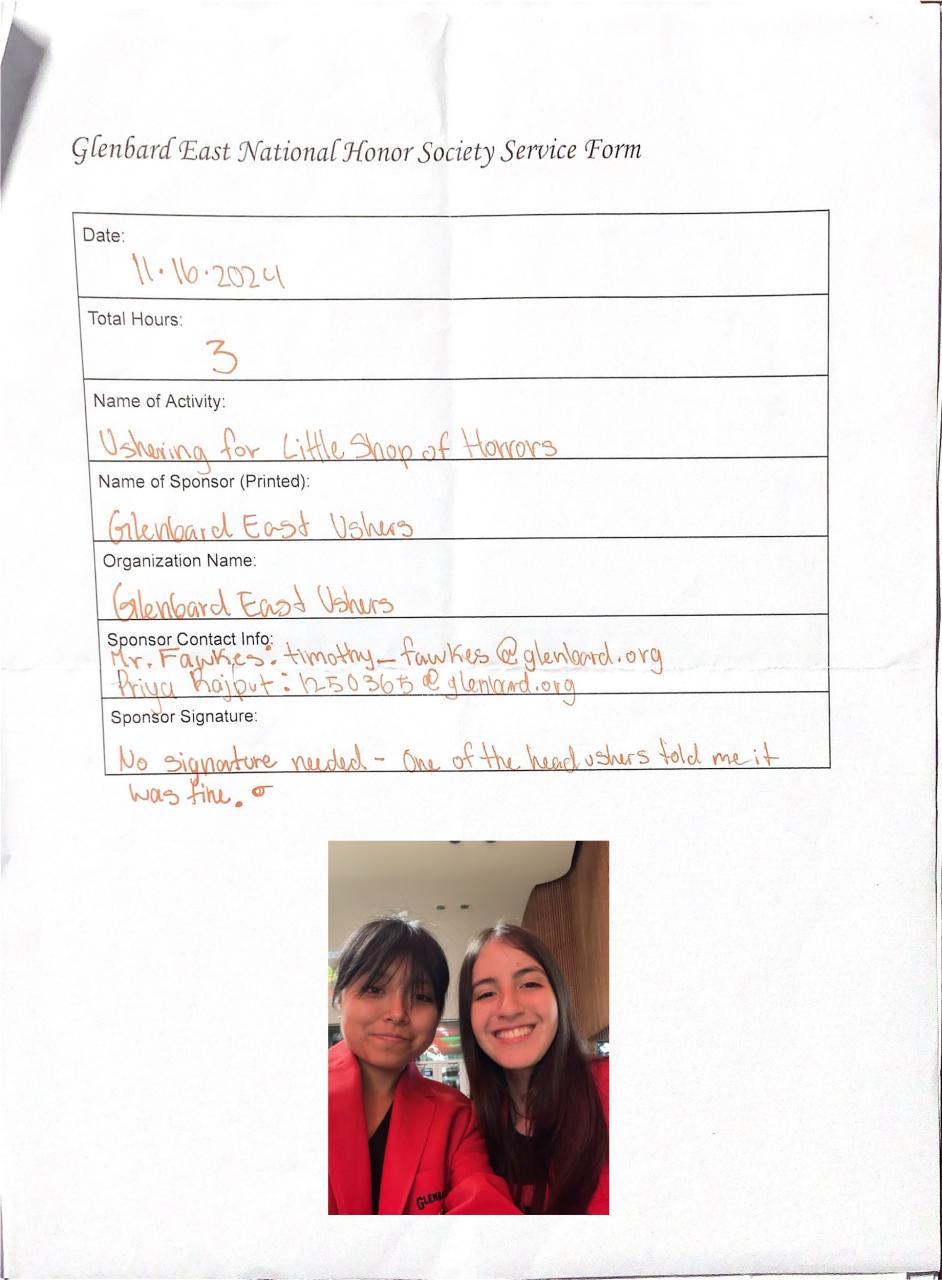 Glenbard East National Honor Society Service Form
Date:
11·16·2024
Total Hours:
3
Name of Activity:
Ushering for Little Shop of Horrors
Name of Sponsor (Printed):
Glenbard East Ushers
Organization Name:
Glenbard East Ushers
Sponsor Contact Info:
Mr. Fawkes: timothy_fawkes@glenbard.org
Priya Rajput: 1250365@glenbard.org
Sponsor Signature:
No signature needed - One of the head ushers told me it
was fine.
GLENBA